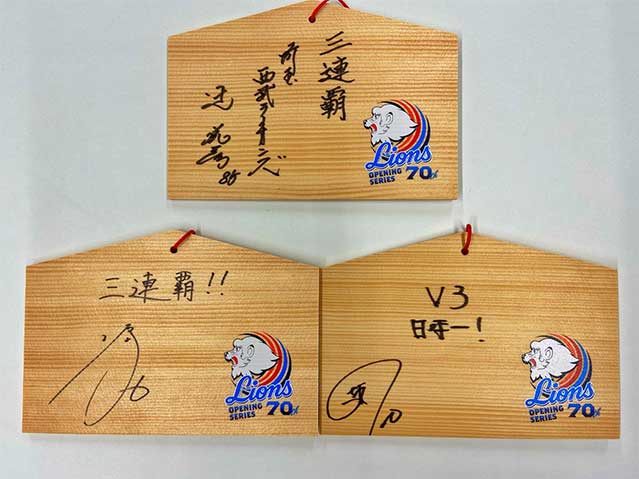 三連覇
埼玉
西武ライオンズ
辻 発彦 85
Lions
OPENING
SERIES 70th
三連覇!!
6
Lions
OPENING
SERIES 70th
V3
日本一!
10
Lions
OPENING
SERIES 70th